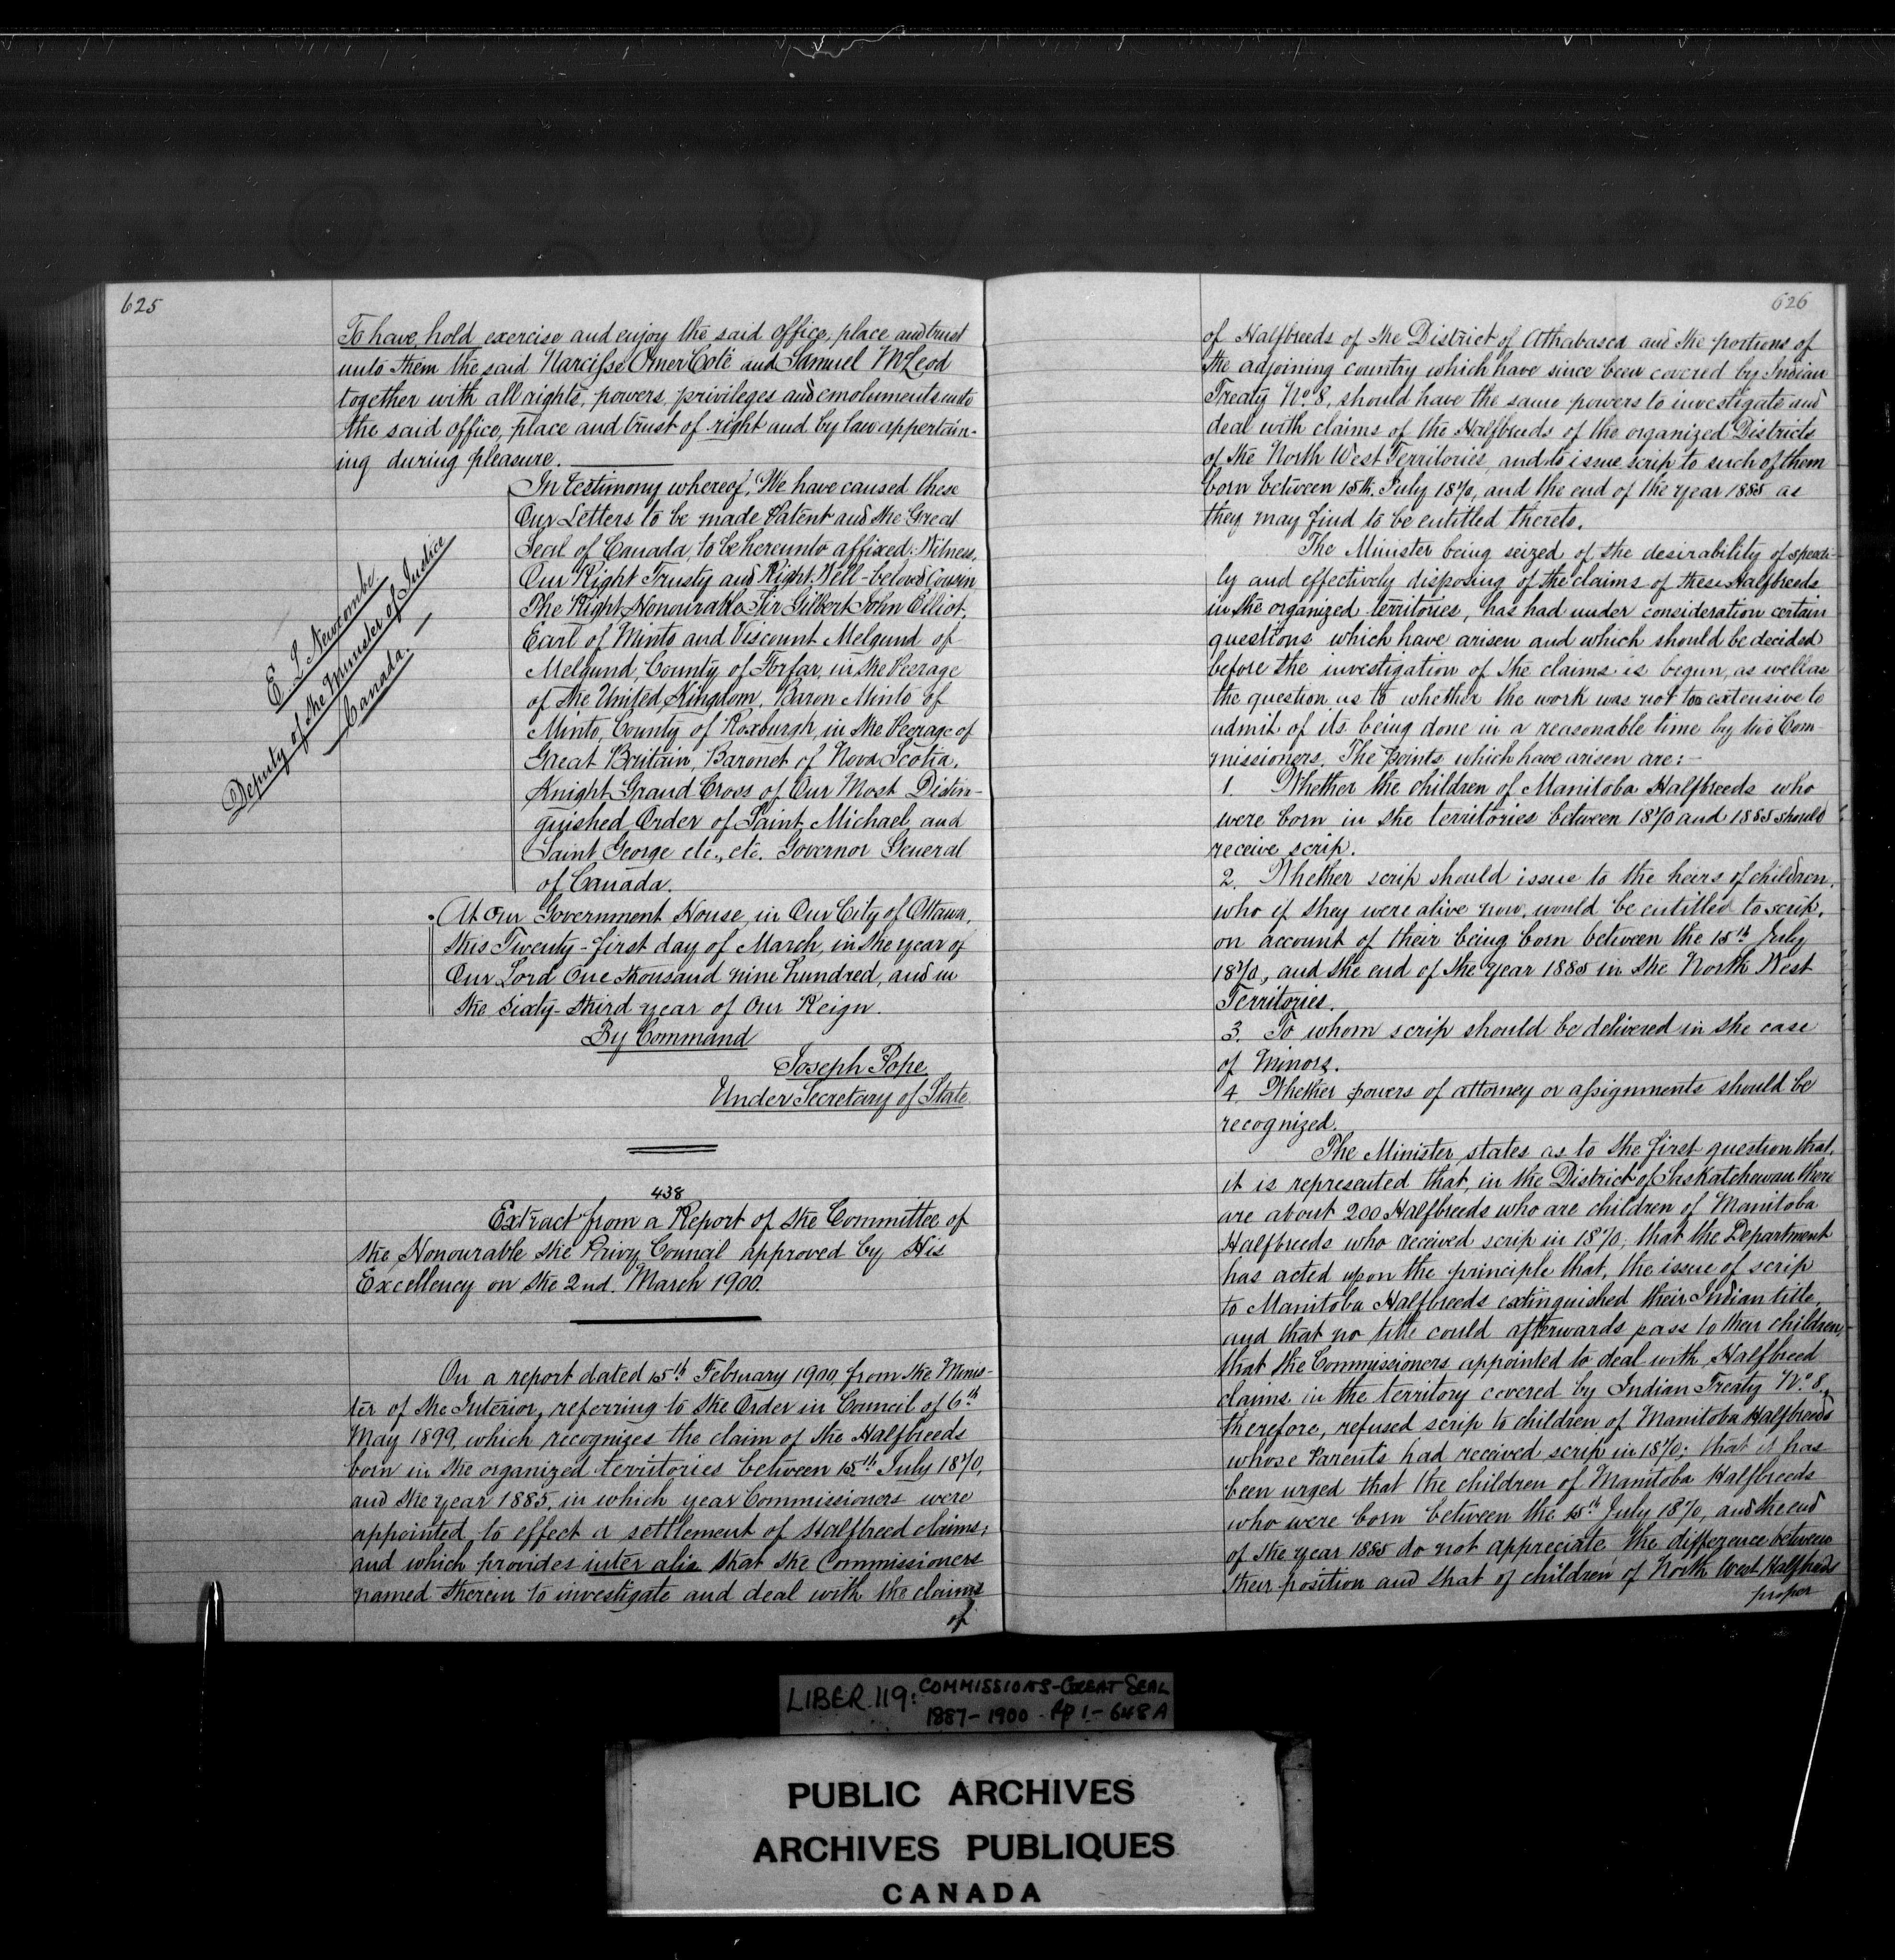 625
To have, hold, exercise and enjoy the said office, place and trust
unto them the said Narcisse Omer Coté and Samuel McLeod
together with all rights, powers, privileges and emoluments unto
the said office, place and trust of right and by law appertain-
ing during pleasure.
In testimony whereof, We have caused these
Our Letters to be made Patent and the Great
Seal of Canada, to be hereunto affixed: Witness,
Our Right Trusty and Right Well-beloved Cousin
The Right Honourable Sir Gilbert John Elliot,
Earl of Minto and Viscount Melgund of
Melgund, County of Forfar, in the Peerage
of the United Kingdom, Baron Minto of
Minto, County of Roxburgh, in the Peerage of
Great Britain, Baronet of Nova Scotia,
Knight Grand Cross of Our Most Distin-
guished Order of Saint Michael and
Saint George etc., etc. Governor General
of Canada.
At Our Government House, in Our City of Ottawa,
this Twenty-first day of March, in the year of
Our Lord One thousand nine hundred, and in
the Sixty-third year of Our Reign.
By Command
Joseph Pope
Under Secretary of State
E. L. Newcombe
Deputy of the Minister of Justice
Canada.
438
Extract from a Report of the Committee of
the Honourable the Privy Council approved by His
Excellency on the 2nd. March 1900.
On a report dated 15th February 1900, from the Minis-
ter of the Interior, referring to the Order in Council of 6th
May 1899, which recognizes the claim of the Halfbreeds
born in the organized territories between 15th July 1870,
and the year 1885, in which year Commissioners were
appointed to effect a settlement of Halfbreed claims;
and which provides inter alia that the Commissioners
named therein to investigate and deal with the claims
of
626
of Halfbreeds of the District of Athabasca and the portions of
the adjoining country which have since been covered by Indian
Treaty No. 8, should have the same powers to investigate and
deal with claims of the Halfbreeds of the organized Districts
of the North West Territories, and to issue scrip to such of them
born between 15th. July 1870, and the end of the year 1885 as
they may find to be entitled thereto.
The Minister being seized of the desirability of speedi-
ly and effectively disposing of the claims of these Halfbreeds
in the organized territories, has had under consideration certain
questions which have arisen and which should be decided
before the investigation of the claims is begun, as well as
the question as to whether the work was not too extensive to
admit of its being done in a reasonable time by two Com-
missioners. The points which have arisen are:-
1. Whether the children of Manitoba Halfbreeds who
were born in the territories between 1870 and 1885 should
receive scrip.
2. Whether scrip should issue to the heirs of children,
who if they were alive now, would be entitled to scrip,
on account of their being born between the 15th July
1870, and the end of the year 1885 in the North West
Territories.
3. To whom scrip should be delivered in the case
of Minors.
4. Whether powers of attorney or assignments should be
recognized.
The Minister states as to the first question that,
it is represented that, in the District of Saskatchewan there
are about 200 Halfbreeds who are children of Manitoba
Halfbreeds who received scrip in 1870; that the Department
has acted upon the principle that, the issue of scrip
to Manitoba Halfbreeds extinguished their Indian title,
and that no title could afterwards pass to their children,
that the Commissioners appointed to deal with Halfbreed
claims in the territory covered by Indian Treaty No. 8,
therefore, refused scrip to children of Manitoba Halfbreeds
whose Parents had received scrip in 1870; that it has
been urged that the children of Manitoba Halfbreeds
who were born between the 15th July 1870, and the end
of the year 1885 do not appreciate the difference between
their position and that of children of North West Halfbreeds
proper
LIBER 119: COMMISSIONS-GREAT SEAL
1887-1900 - Pp 1-648A
PUBLIC ARCHIVES
ARCHIVES PUBLIQUES
CANADA